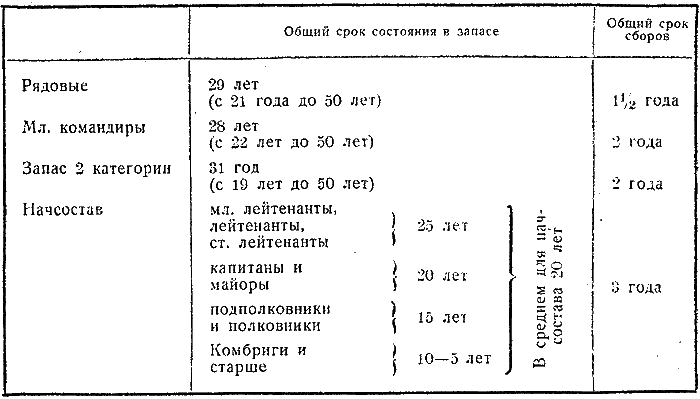 Общий срок состояния в запасе
Общий срок
сборов
Рядовые
29 лет
(с 21 года до 50 лет)
1½ года
Мл. командиры
28 лет
(с 22 лет до 50 лет)
2 года
Запас 2 категории
31 год
(с 19 лет до 50 лет)
2 года
Начсостав
мл. лейтенанты,
лейтенанты,
ст. лейтенанты
25 лет
капитаны и
майоры
20 лет
подполковники
и полковники
15 лет
Комбриги и
старше
10—5 лет
В среднем для нач-
состава 20 лет
3 года